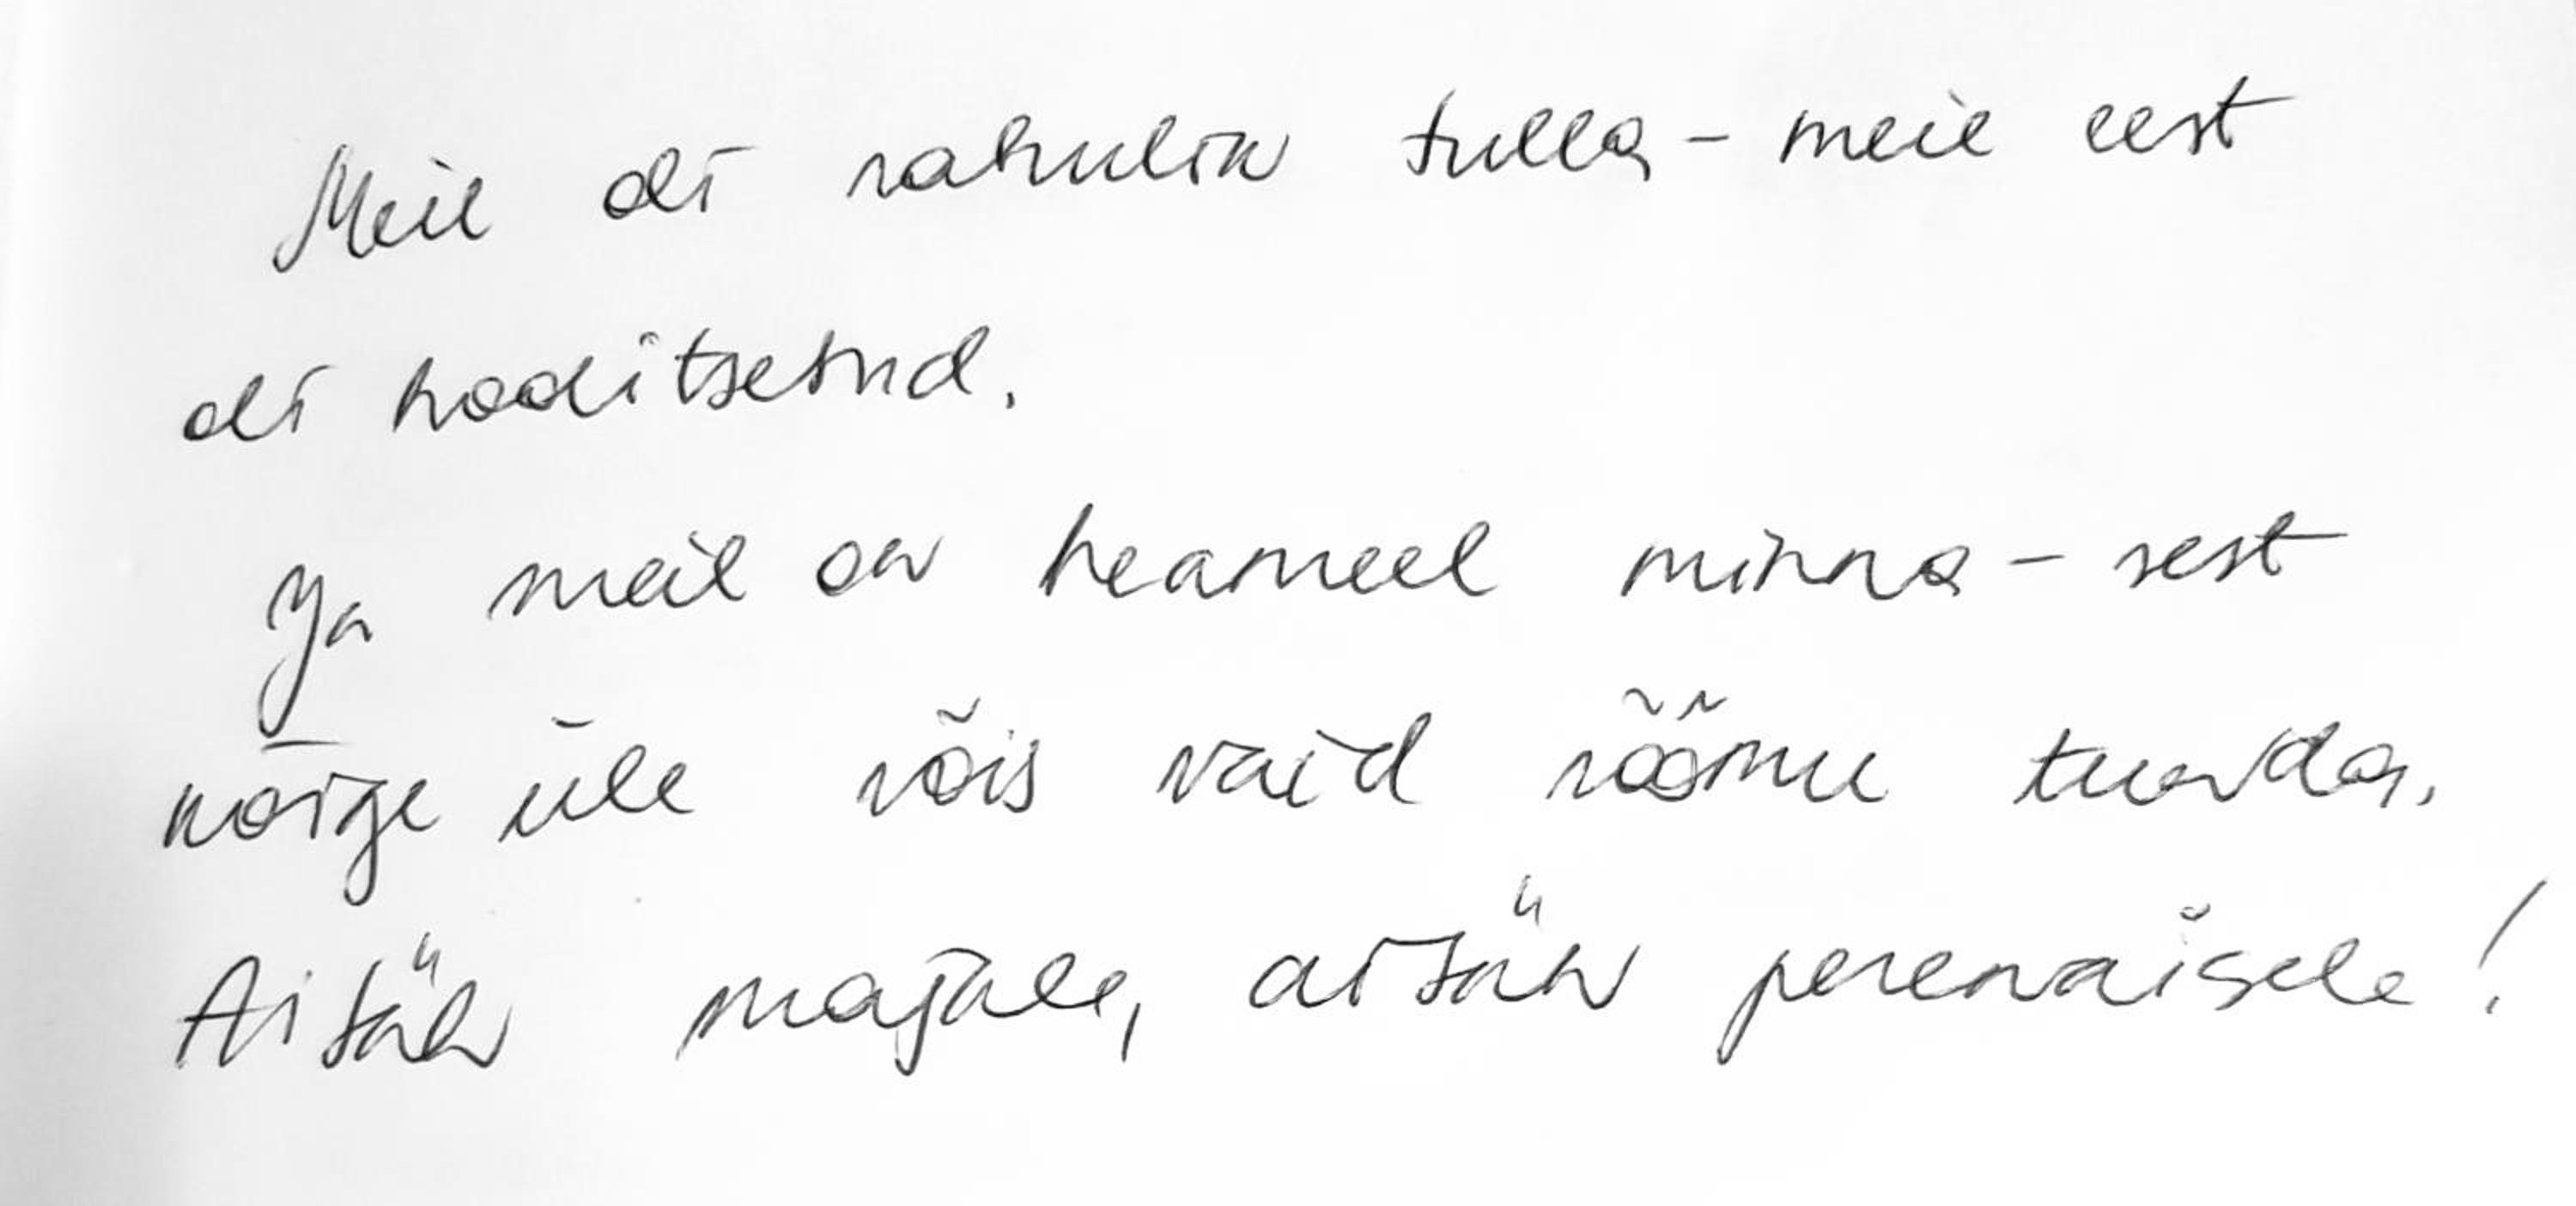 Meil oli rahulik tulla - meie eest
oli hoolitsetud.
Ja meil on heameel minna - sest
kõige üle võis vaid rõõmu tunda.
Aitäh majale, aitäh perenaisele!